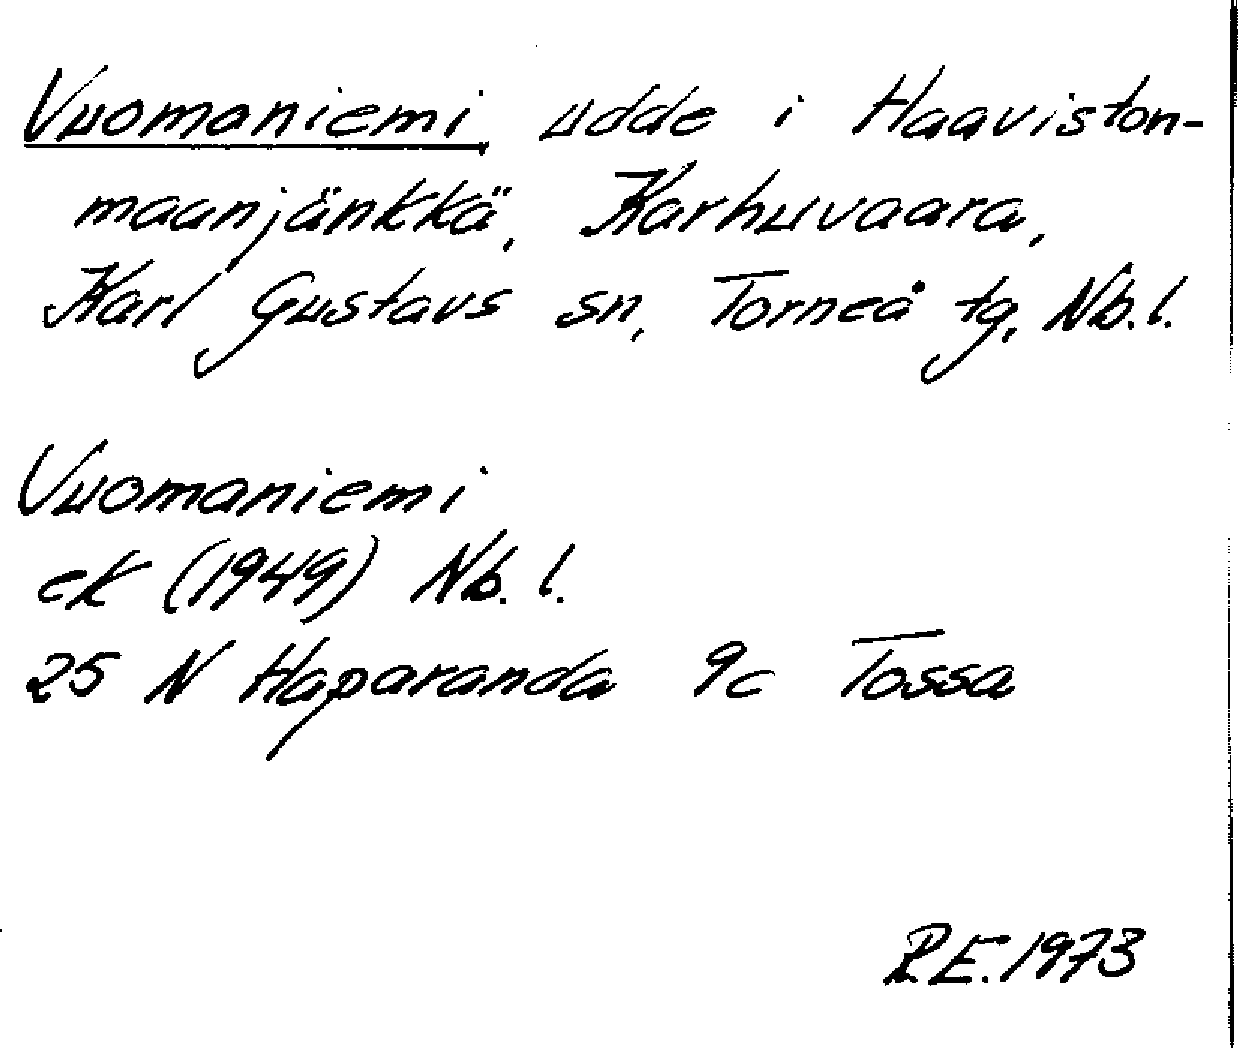 Vuomaniemi, udde i Haaviston-
maanjänkkä, Karhuvaara,
Karl Gustavs sn, Torneå tg, Nb.l.
Vuomaniemi
ek (1949) Nb.l.
25 N Haparanda 9c Tossa
R.E. 1973